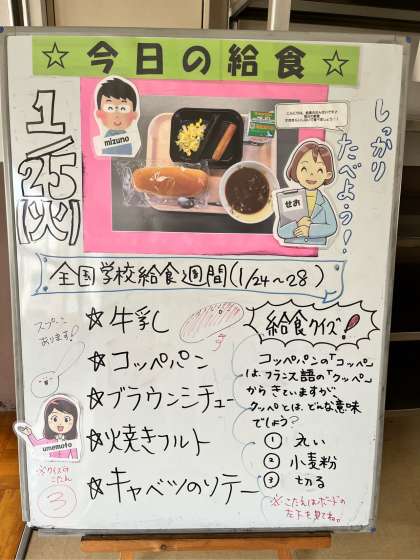 ☆今日の給食☆
1/25
(火)
mizuno
せお
しっかり
たべよう!
全国学校給食週間(1/24~28)
スプーン
あります!
☆牛乳
☆コッペパン
☆ブラウンシチュー
☆焼きフルト
☆キャベツのソテー
umemoto
※クイズの
こたえ
③
給食クイズ!
コッペパンの「コッペ」
は、フランス語の「クッペ」
からきていますが、
クッペとは、どんな意味
でしょう?
① 丸い
② 小麦粉
③ 切る
※こたえはボードの
左下を見てね。